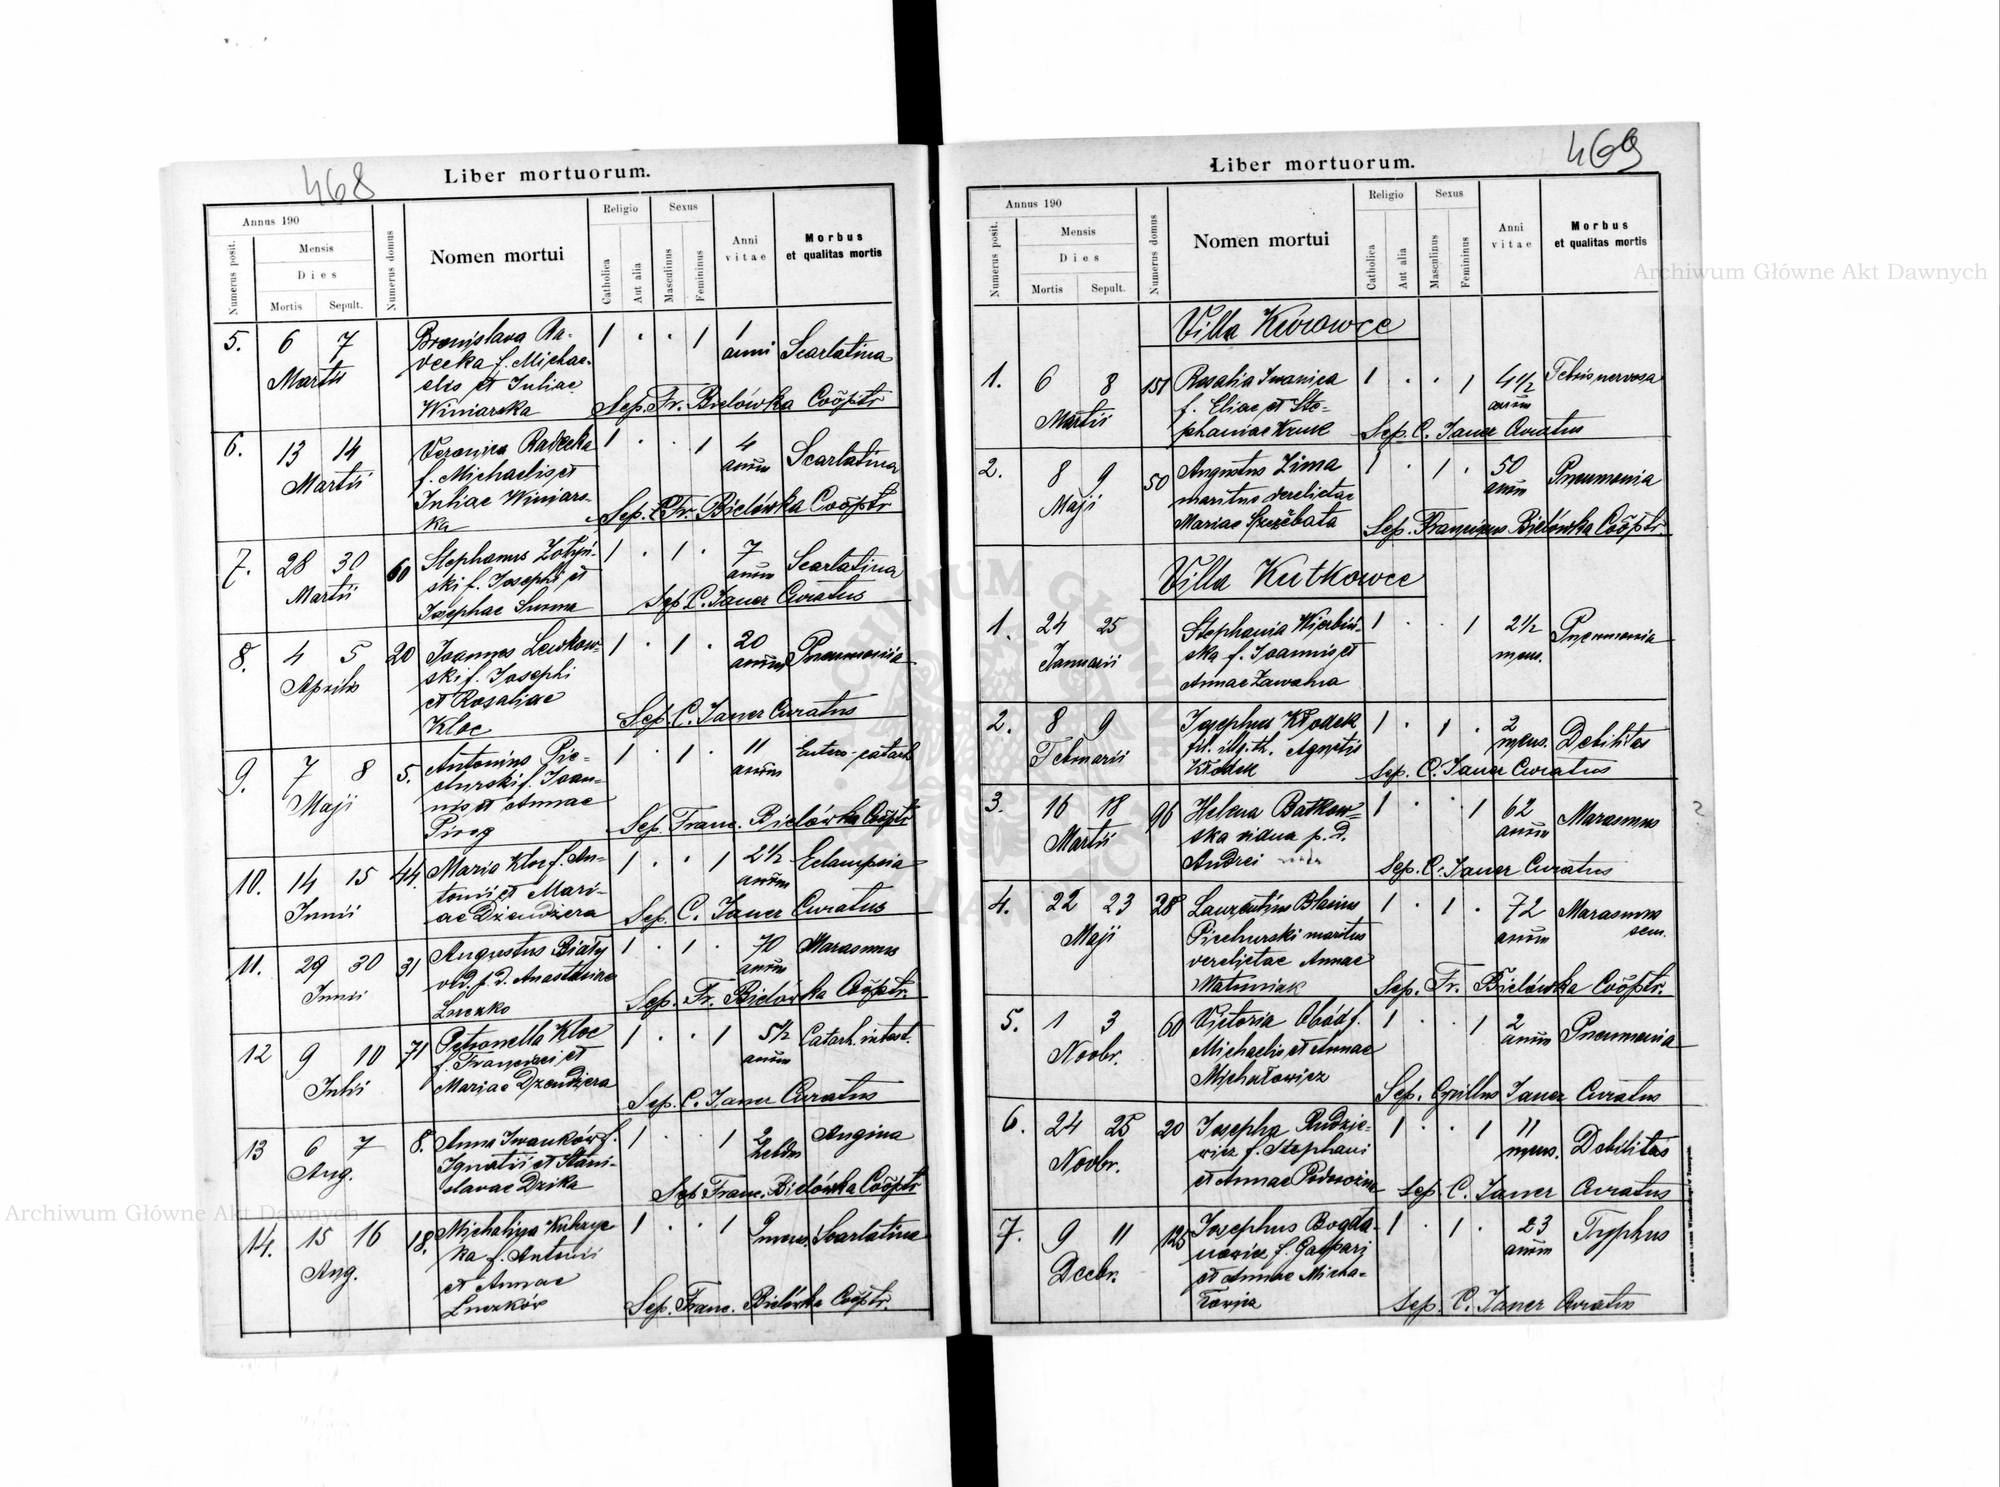 468
Liber mortuorum.
Annus 190
Numerus posit.
Mensis
Dies
Mortis
Sepult.
Numerus domus
Nomen mortui
Religio
Catholica
Aut alia
Sexus
Masculinus
Femininus
Anni vitae
Morbus
et qualitas mortis
5. 6 7 Bronislava Ra- 1 . . 1 1 Scarlatina
Martii decka f. Michae- anni
elis et Juliae
Winiarska Sep. Fr. Bielówka Coõptr
6. 13 14 Veronica Radecka 1 . . 1 4 Scarlatina
Martii f. Michaelis et anñm
Juliae Winiars-
ka Sep. Fr. Bielówka Coõptr
7. 28 30 60 Stephanus 1 . 1 . 7 Scarlatina
Martii ski f. Josephi et anñm
Josephae Surma Sep. C. Janer Curatus
8. 4 5 20 Joannes Lewkow- 1 . 1 . 20 Pneumonia
Aprilis ski f. Josephi anñm
et Rosaliae
Kloc Sep. C. Janer Curatus
9. 7 8 5. Antonius Pie- 1 . 1 . 11 Entero-catarh
Maji churski f. Joan- anñm
nis et Annae
Pirog Sep. Franc. Bielówka Coõptr
10. 14 15 44. Maria Kloc f. An- 1 . . 1 2½ Eclampsia
Junii tonii et Mari- anñm
ae Dziendziera Sep. C. Janer Curatus
11. 29 30 31 Augustus Biały 1 . 1 . 70 Marasmus
Junii vid. p. d. Anastasiae anñm
Luczko Sep. Fr. Bielówka Coõptr.
12 9 10 71 Petronella Kloc 1 . . 1 5½ Catarh. intest.
Julii f. Francisci et anñm
Mariae Dzendziera
Sep. C. Janer Curatus
13 6 7 8. Anna Iwanków f. 1 . . 1 2 Angina
Aug. Ignatii et Stani-
slavae Dzika Sep. Franc. Bielówka Coõptr
14. 15 16 18. Michalina 1 . . 1 9 Scarlatina
Aug. ka f. Antonii mens.
et Annae
Luczków Sep. Franc. Bielówka Coõptr.
469
Liber mortuorum.
Annus 190
Numerus posit.
Mensis
Dies
Mortis
Sepult.
Numerus domus
Nomen mortui
Religio
Catholica
Aut alia
Sexus
Masculinus
Femininus
Anni vitae
Morbus
et qualitas mortis
Villa Kurowce
1. 6 8 151 Rosalia Iwanica 1 . . 1 4½ Febris nervosa
Martii f. Eliae et Ste- anñm
phaniae Kruk Sep. C. Janer Curatus
2. 8 9 50 Augustus Zima 1 . 1 . 50 Pneumonia
Maji maritus derelictae anñm
Mariae Szczebata Sep. Franciscus Bielówka Coõptr.
Villa Kutkowce
1. 24 25 Stephania Wierbiń- 1 . . 1 2½ Pneumonia
Januarii ska f. Joannis et mens.
Annae Zawalna
2. 8 9 Josephus Kłodek 1 . 1 . 2 Debilitas
Februarii fil. illg. th. Agnetis mens.
Kłodek Sep. C. Janer Curatus
3. 16 18 96 Helena Batkow- 1 . . 1 62 Marasmus
Martii ska vidua p. d. anñm
Andrei Sep. C. Janer Curatus
4. 22 23 28 Laurentius Blasius 1 . 1 . 72 Marasmus
Maji Piechurski maritus anñm sen.
derelictae Annae
Matuniak Sep. Fr. Bielówka Coõptr.
5. 1 3 60 Victoria Obád f. 1 . . 1 2 Pneumonia
Novbr. Michaelis et Annae anñm
Michałowicz Sep. Cyrillus Janer Curatus
6. 24 25 20 Josepha Rudzie- 1 . . 1 11 Debilitas
Novbr. wicz f. Stephani mens.
et Annae Podworzna Sep. C. Janer Curatus
7. 9 11 125 Josephus Bogda- 1 . 1 . 23 Typhus
Decbr. nowicz f. Gaspari anñm
et Annae Micha-
Sep. C. Janer Curatus
Archiwum Główne Akt Dawnych
Archiwum Główne Akt Dawnych
ARCHIWUM GŁÓWNE AKT DAWNYCH